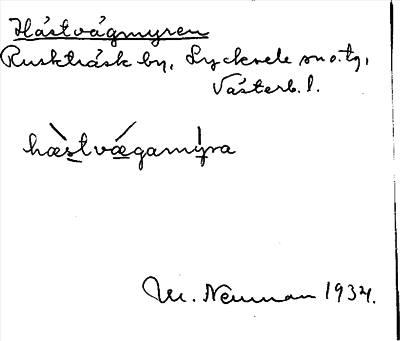 Hästvägmyren
Ruskträsk by, Lycksele sn o. tg,
Västerb. l.
hästvægamyra
M. Neuman 1934.